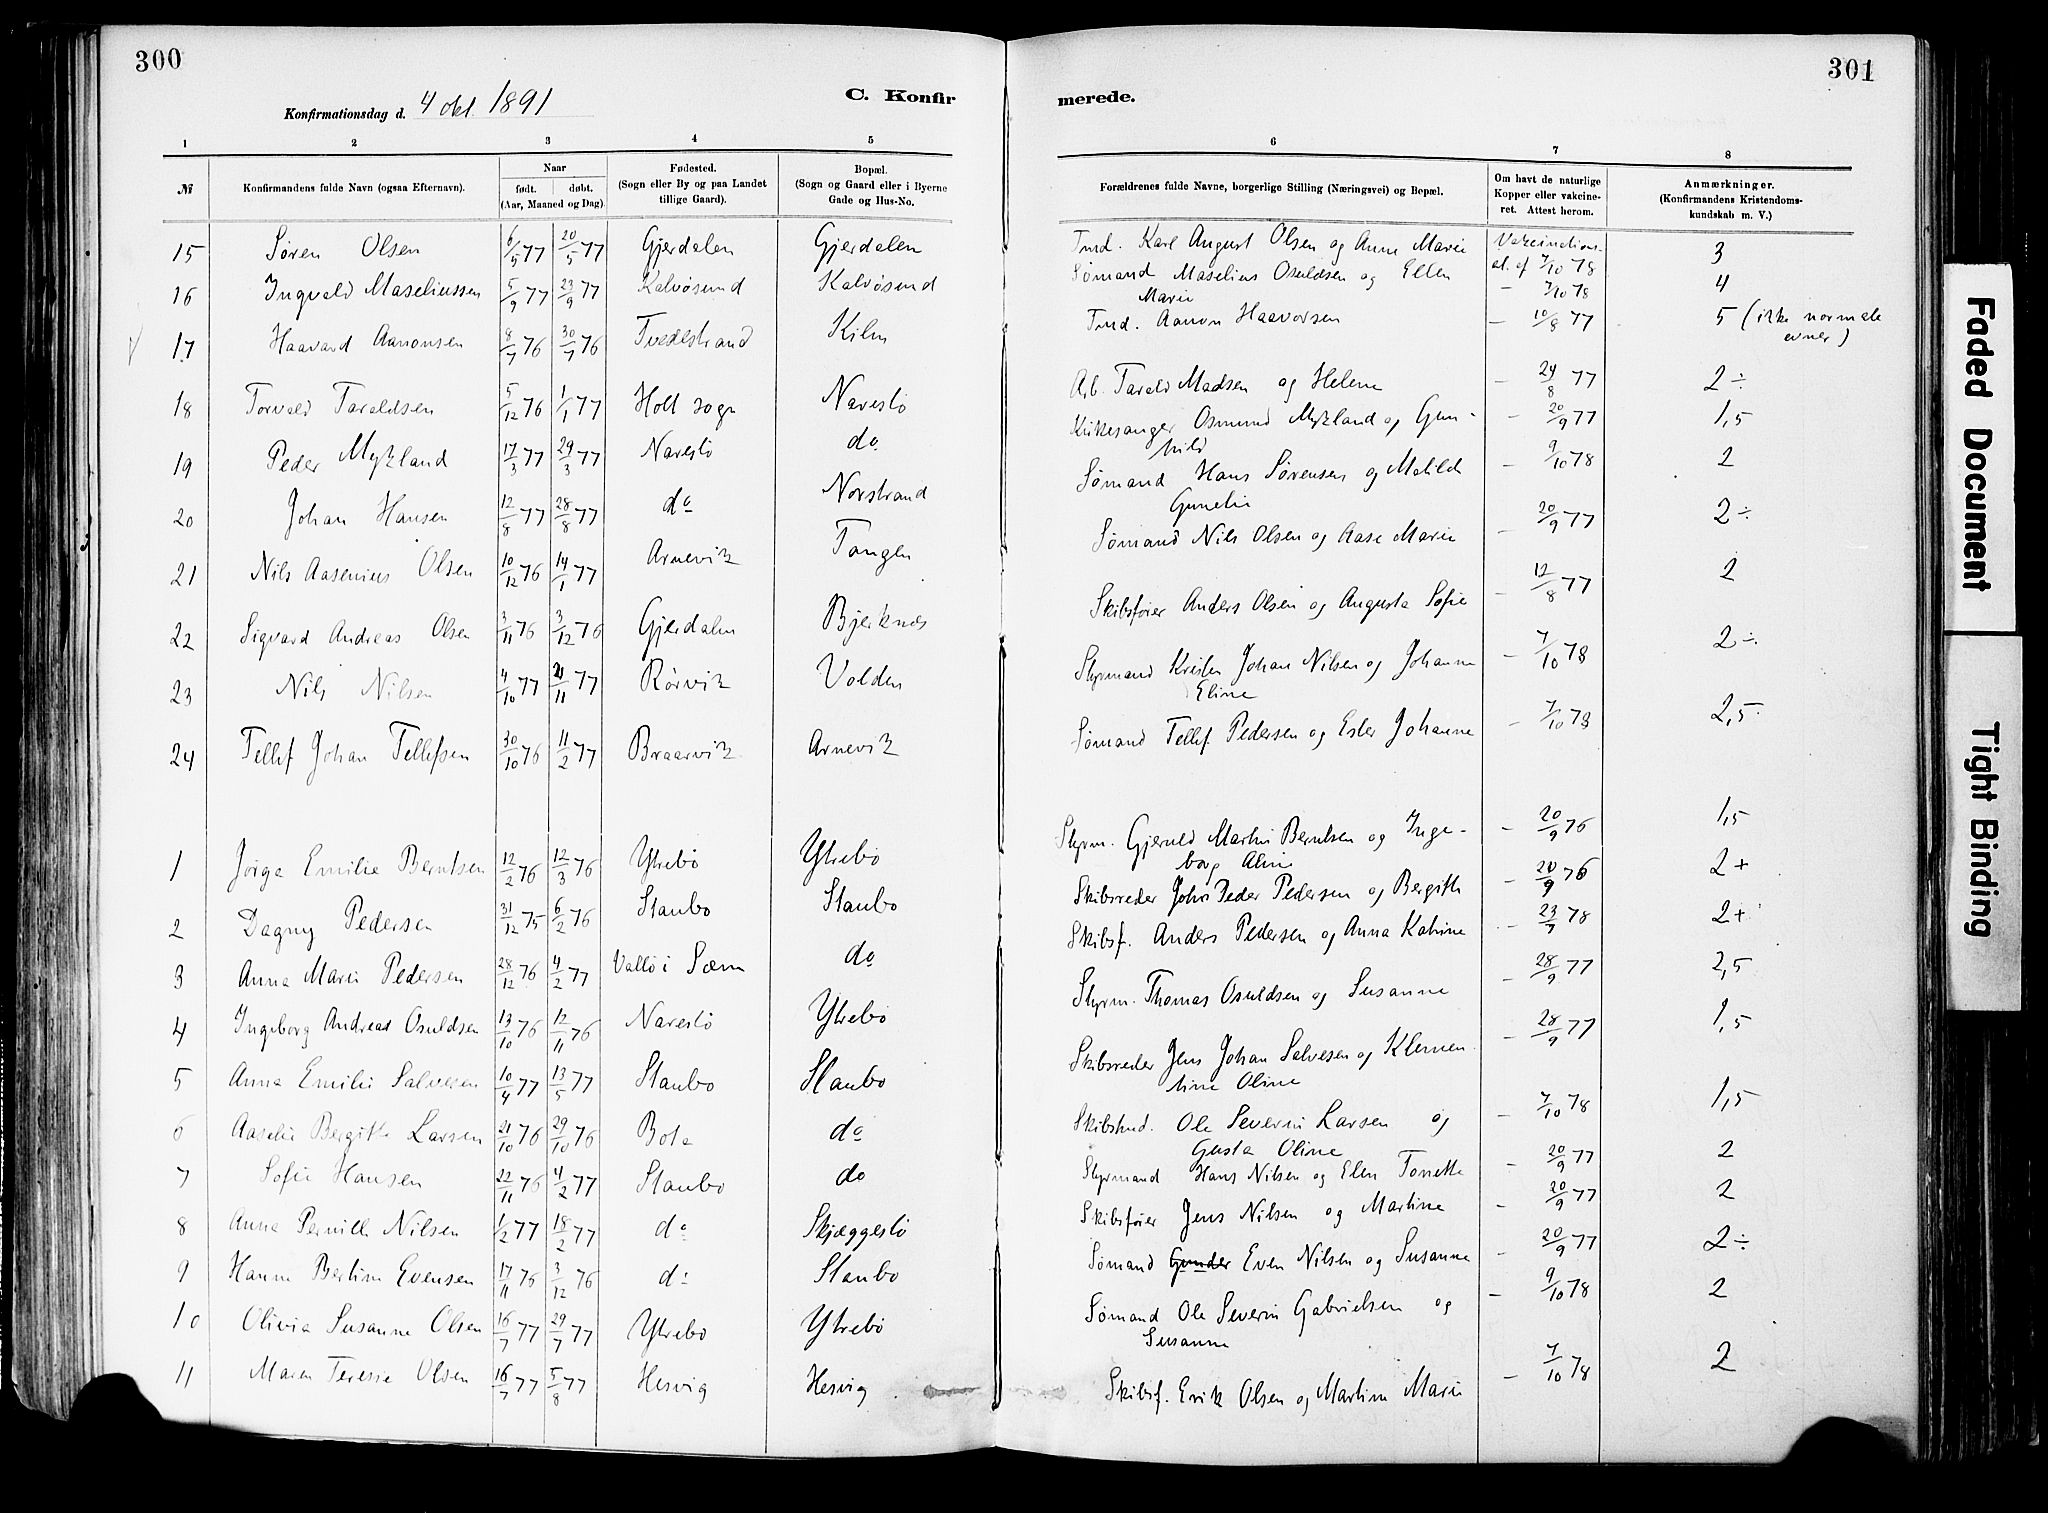 300
301
Konfirmationsdag d. 4 okt 1891
C. Konfir
merede.
1 2 3 4 5 6 7 8
№
Konfirmandens fulde Navn (ogsaa Efternavn).
Naar
født. døbt.
(Aar, Maaned og Dag)
Fødested.
(Sogn eller By og paa Landet
tillige Gaard).
Bopæl.
(Sogn og Gaard eller i Byerne
Gade og Hus-No.
Forældrenes fulde Navne, borgerlige Stilling (Næringsvei) og Bopæl.
Om havt de naturlige
Kopper eller vakcine-
ret. Attest herom.
Anmærkninger.
(Konfirmandens Kristendoms-
kundskab m. V.)
15 Søren Olsen 6/5 77 20/5 77 Gjerdalen Gjerdalen Karl August Olsen og Anne Marie Vakcinations- 3
at. af 7/10 78
16 Ingvald Maseliussen 5/9 77 23/9 77 Kalvøsund Kalvøsund Sømand Maselius Osuldsen og Ellen Marie — 7/10 78 4
17 Haavard Aanonsen 8/7 76 30/7 76 Tvedestrand Kiln Aanon Haavorsen — 10/8 77 5 (ikke normale
evner)
18 Torvald Taraldsen 5/12 76 1/1 77 Holt sogn Narestø Arb. Tarald Madsen og Helene — 24/8 77 2÷
19 Peder Mykland 17/3 77 29/3 77 Narestø do Kirkesanger Osmund Mykland og Gun-
hild — 20/9 77 1,5
20 Johan Hansen 12/8 77 28/8 77 do Norstrand Sømand Hans Sørensen og Matilde
Gunelie — 9/10 78 2
21 Nils Aasenius Olsen 10/12 76 14/1 77 Arnevik Tangen Sømand Nils Olsen og Aase Marie — 20/9 77 2÷
22 Sigvard Andreas Olsen 3/11 76 3/12 76 Gjerdalen Bjerknes Skibsfører Anders Olsen og Augusta Sofie — 12/8 77 2
23 Nils Nilsen 4/10 77 /11 77 Rørvik Volden Styrmand Kristen Johan Nilsen og Johanne
Eline — 7/10 78 2÷
24 Tellef Johan Tellefsen 30/10 76 11/2 77 Braarvik Arnevik Sømand Tellef Pedersen og Ester Johanne — 7/10 78 2,5
1 Jørga Emilie Berntsen 12/2 76 12/3 76 Ytrebø Ytrebø Styrm. Gjeruld Martin Berntsen og Inge-
borg Aline — 20/9 76 1,5
2 Dagny Pedersen 31/12 75 6/2 76 Staubø Staubø Skibsreder John Peder Pedersen og Bergitte — 20/9 76 2+
3 Anna Marie Pedersen 28/12 76 4/2 77 Vallø i Sæm do Skibsf. Anders Pedersen og Anna Katrine — 23/7 78 2+
4 Ingeborg Andrea Osuldsen 13/10 76 12/11 76 Narestø Ytrebø Styrm. Thomas Osuldsen og Susanne — 28/9 77 2,5
5 Anna Emilie Salvesen 10/4 77 13/5 77 Staubø Staubø Skibsreder Jens Johan Salvesen og Klemen
tine Oline — 28/9 77 1,5
6 Aaselie Bergitte Larsen 21/10 76 29/10 76 Bota do Ole Severin Larsen og
Gusta Oline — 7/10 78 1,5
7 Sofie Hansen 22/11 76 4/2 77 Staubø do Styrmand Hans Nilsen og Elen Tonette — 20/9 77 2
8 Anna Pernille Nilsen 1/2 77 18/2 77 do Skjæggestø Skibsfører Jens Nilsen og Martine — 20/9 77 2
9 Hanne Bertine Evensen 17/11 76 3/12 76 do Staubø Sømand Gunder Even Nilsen og Susanne — 20/9 77 2÷
10 Olivia Susanne Olsen 16/7 77 29/7 77 Ytrebø Ytrebø Sømand Ole Severin Gabrielsen og
Susanne — 9/10 78 2
11 Maren Teresie Olsen 16/7 77 5/8 77 Hesvig Hesvig Skibsf. Erik Olsen og Martine Marie — 7/10 78 2
Faded Document
Tight Binding